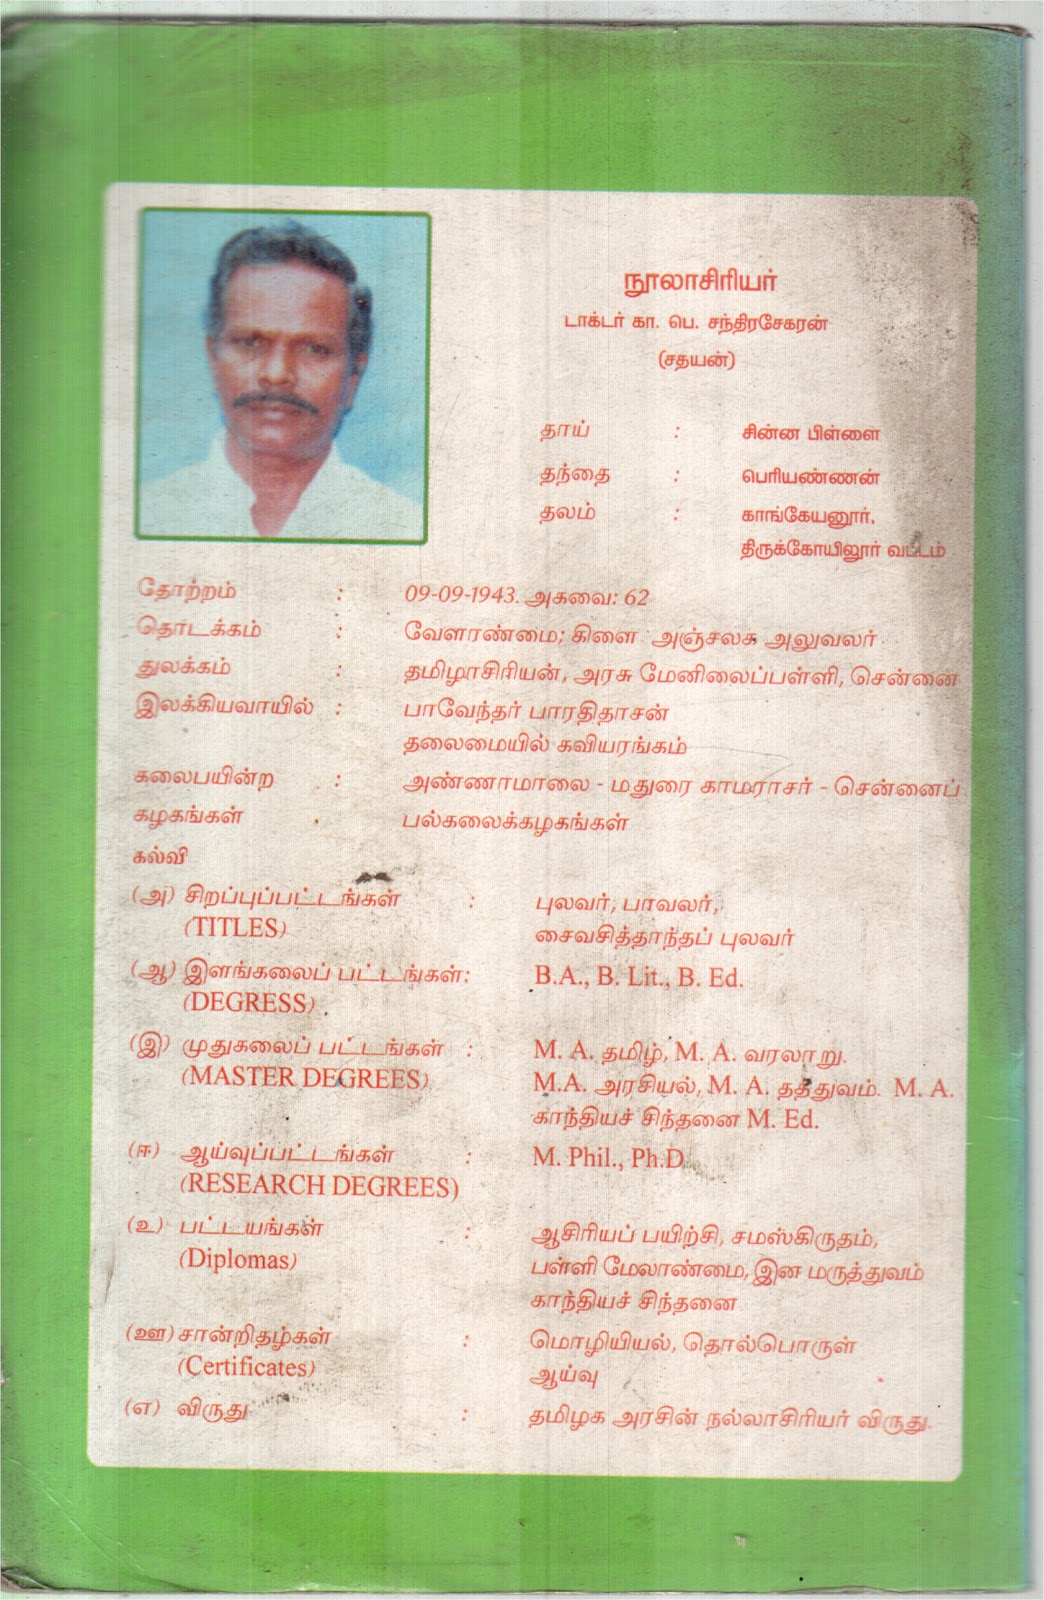 நூலாசிரியர்
டாக்டர் கா. பெ. சந்திரசேகரன்
(சதயன்)
தாய் : சின்ன பிள்ளை
தந்தை : பெரியண்ணன்
தலம் : காங்கேயனூர்,
திருக்கோயிலூர் வட்டம்
தோற்றம் : 09-09-1943. அகவை: 62
தொடக்கம் : வேளாண்மை; கிளை அஞ்சலக அலுவலர்
துலக்கம் : தமிழாசிரியன், அரசு மேனிலைப்பள்ளி, சென்னை
இலக்கியவாயில் : பாவேந்தர் பாரதிதாசன்
தலைமையில் கவியரங்கம்
கலைபயின்ற : அண்ணாமாலை - மதுரை காமராசர் - சென்னைப்
கழகங்கள் . பல்கலைக்கழகங்கள்
கல்வி
(அ) சிறப்புப்பட்டங்கள் : புலவர், பாவலர்,
(TITLES) சைவசித்தாந்தப் புலவர்
(ஆ) இளங்கலைப் பட்டங்கள்: B.A., B. Lit., B. Ed.
(DEGRESS)
(இ) முதுகலைப் பட்டங்கள் : M. A. தமிழ், M. A. வரலாறு.
(MASTER DEGREES) M.A. அரசியல், M. A. தத்துவம். M. A.
காந்தியச் சிந்தனை M. Ed.
(ஈ) ஆய்வுப்பட்டங்கள் : M. Phil., Ph.D
(RESEARCH DEGREES)
(உ) பட்டயங்கள் : ஆசிரியப் பயிற்சி, சமஸ்கிருதம்,
(Diplomas) பள்ளி மேலாண்மை, இன மருத்துவம்
காந்தியச் சிந்தனை
(ஊ) சான்றிதழ்கள் : மொழியியல், தொல்பொருள்
(Certificates) ஆய்வு
(எ) விருது : தமிழக அரசின் நல்லாசிரியர் விருது.